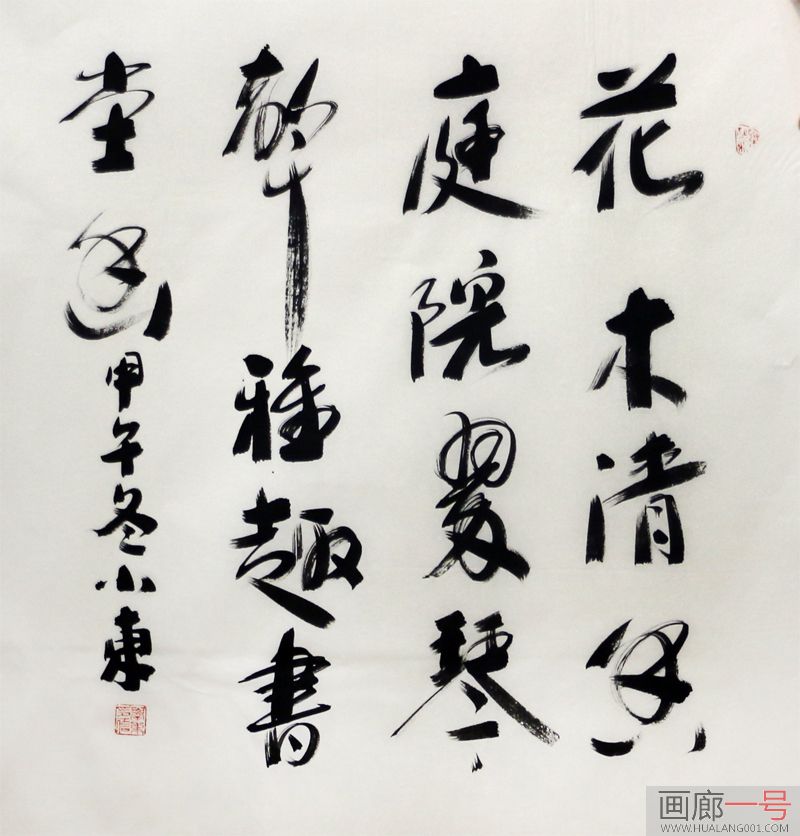 花木清香
庭院翠琴
聲雅趣書
堂幽
甲午冬小東
画廊一号
WWW.HUALANG001.COM